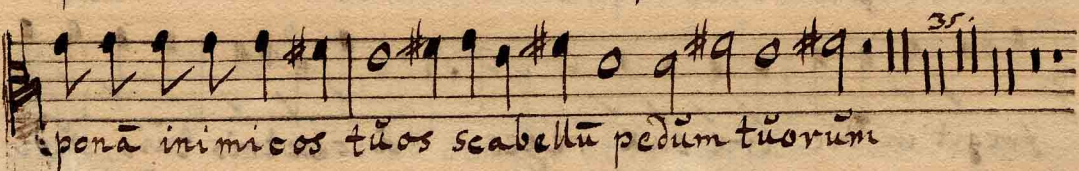 35.
ponā inimicos tŭos scabellū pedŭm tŭorŭm